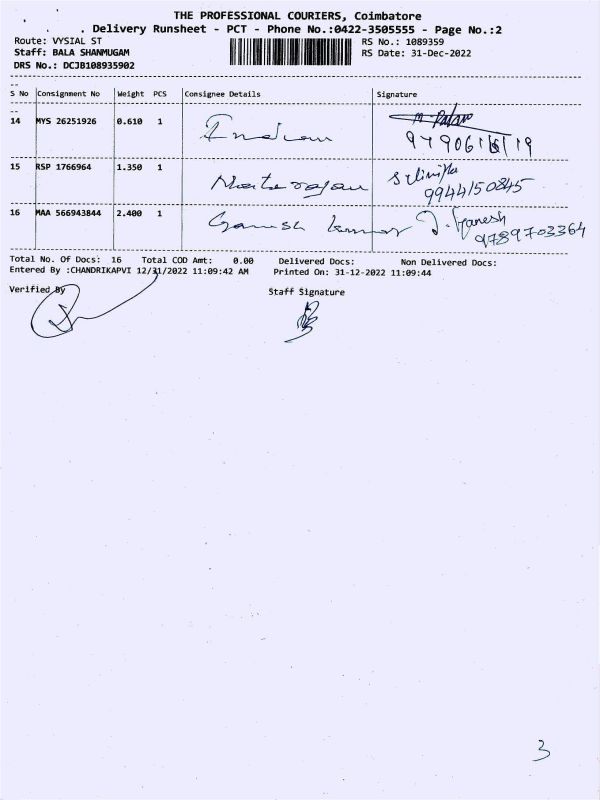 THE PROFESSIONAL COURIERS, Coimbatore
Delivery Runsheet - PCT - Phone No.:0422-3505555 - Page No.:2
Route: VYSIAL ST RS No.: 1089359
Staff: BALA SHANMUGAM RS Date: 31-Dec-2022
DRS No.: DCJB108935902
S No Consignment No Weight PCS Consignee Details Signature
14 MYS 26251926 0.610 1 Indian
15 RSP 1766964 1.350 1 Natarajan
9944150845
16 MAA 566943844 2.400 1 Ganesh kumar J. Ganesh
9789703364
Total No. Of Docs: 16 Total COD Amt: 0.00 Delivered Docs: Non Delivered Docs:
Entered By :CHANDRIKAPVI 12/31/2022 11:09:42 AM Printed On: 31-12-2022 11:09:44
Verified By Staff Signature
3